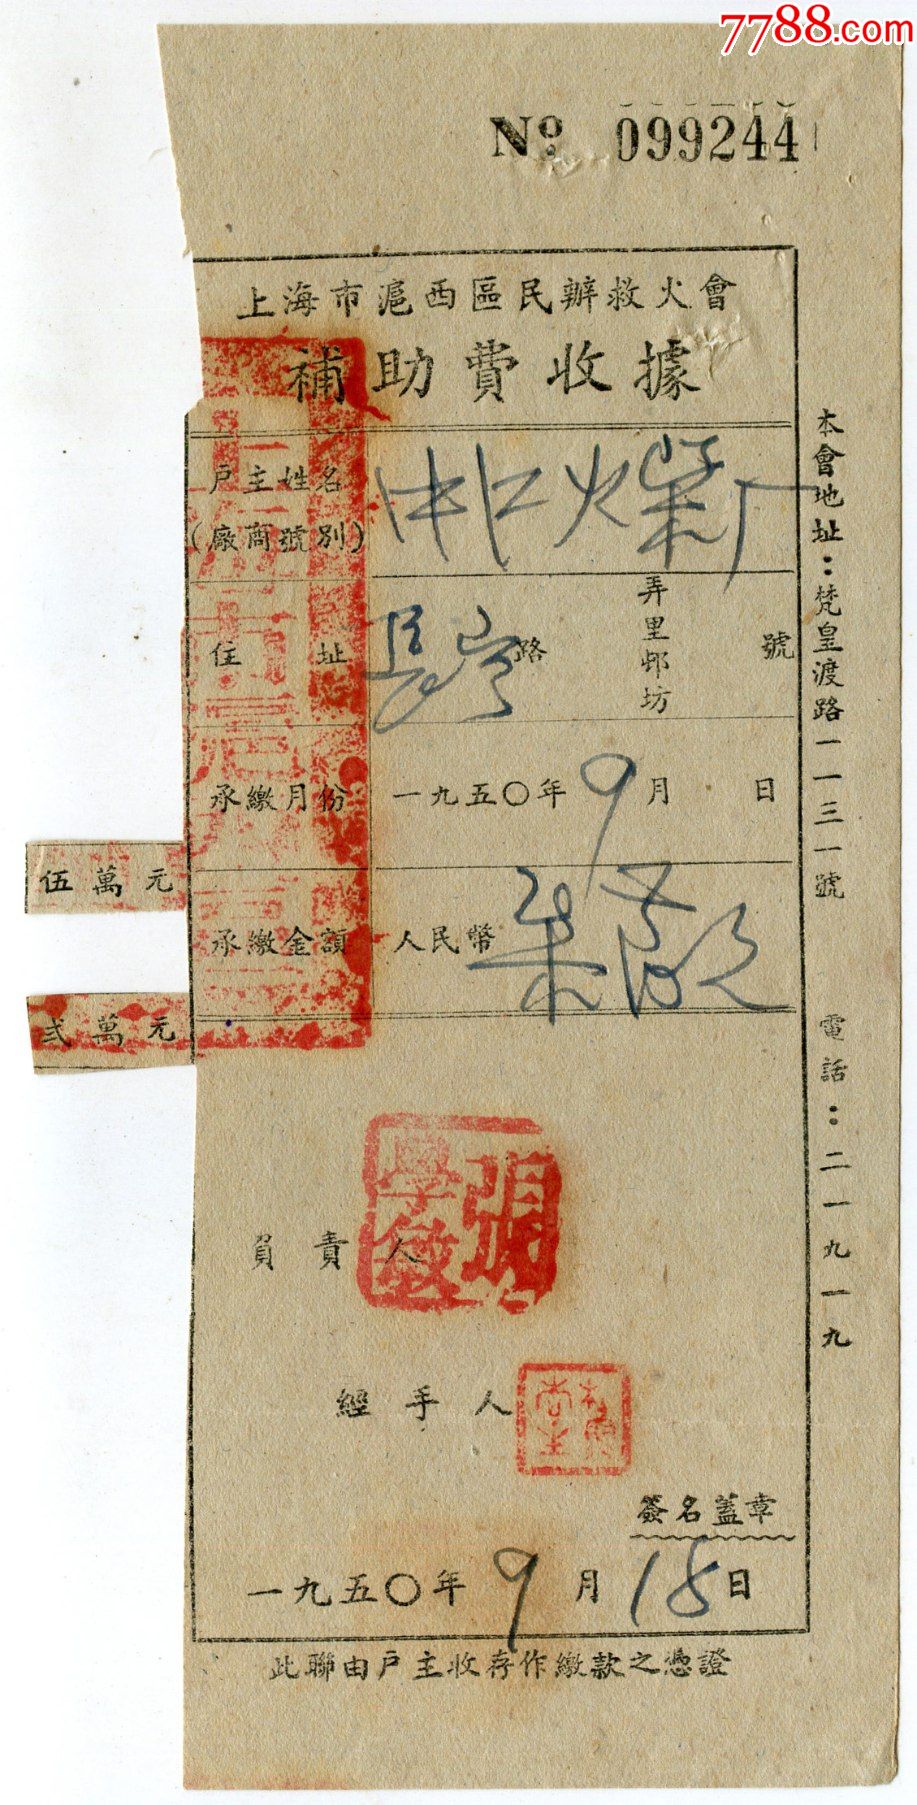 7788.com
No. 099244
上海市滬西區民辦救火會
補助費收據
戶主姓名
(廠商號別)
住址
長寧路
弄里邨坊
號
承繳月份
一九五〇年9月 日
伍萬元
承繳金額
人民幣
弍萬元
負責人
張學敏
經手人
簽名蓋章
一九五〇年9月18日
此聯由戶主收存作繳款之憑證
本會地址：梵皇渡路一一三一號
電話：二一九一九